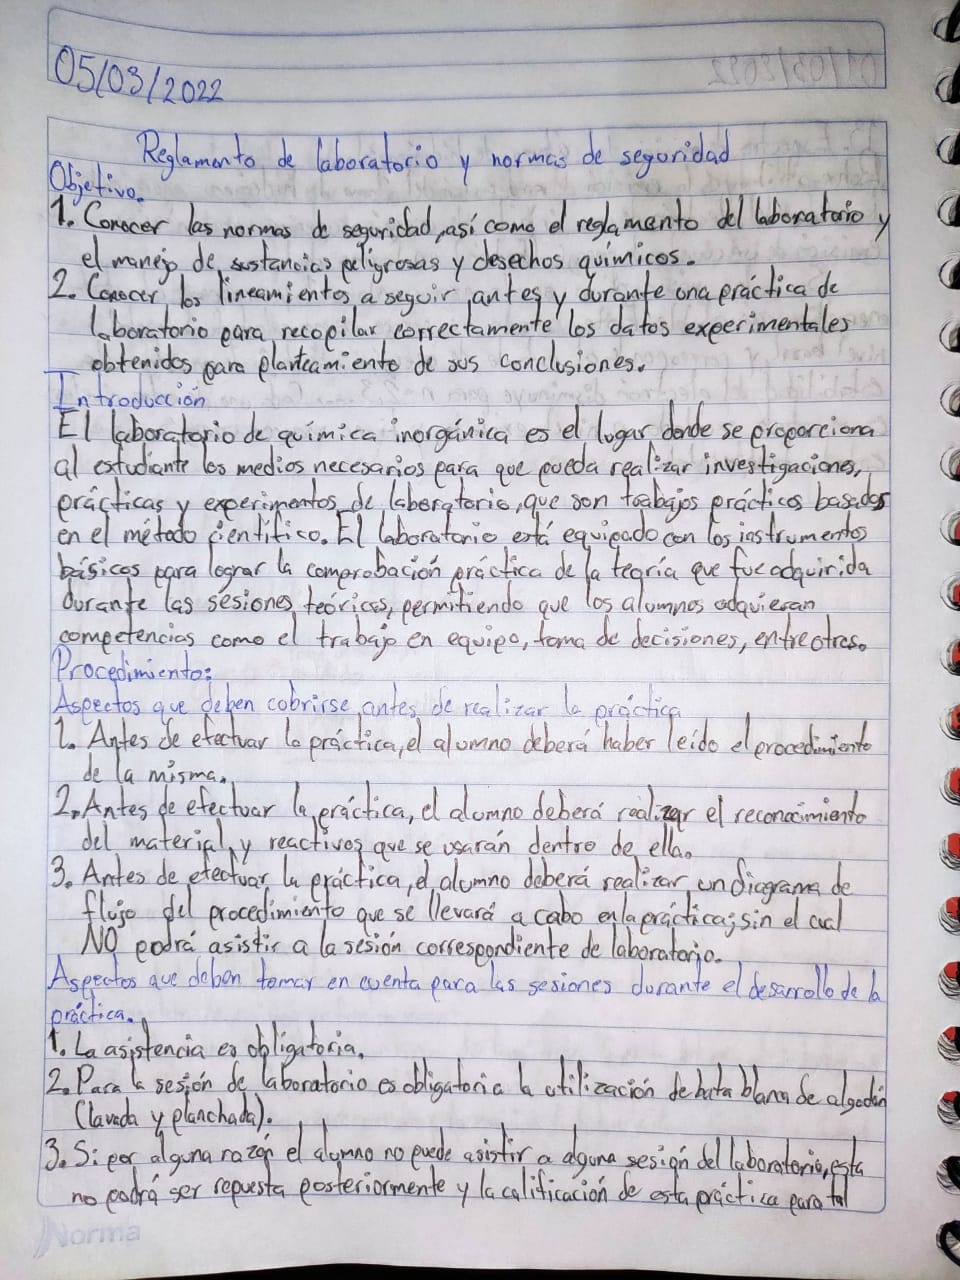 05/03/2022
Reglamento de laboratorio y normas de seguridad
Objetivo.
1. Conocer las normas de seguridad, así como el reglamento del laboratorio y
el manejo de sustancias peligrosas y desechos químicos.
2. Conocer los lineamientos a seguir antes y durante una práctica de
laboratorio para recopilar correctamente los datos experimentales
obtenidos para planteamiento de sus conclusiones.
Introducción
El laboratorio de química inorgánica es el lugar donde se proporciona
al estudiante los medios necesarios para que pueda realizar investigaciones,
prácticas y experimentos de laboratorio, que son trabajos prácticos basados
en el método científico. El laboratorio está equipado con los instrumentos
básicos para lograr la comprobación práctica de la teoría que fue adquirida
durante las sesiones teóricas, permitiendo que los alumnos adquieran
competencias como el trabajo en equipo, toma de decisiones, entre otras.
Procedimiento:
Aspectos que deben cobrirse antes de realizar la práctica
1. Antes de efectuar la práctica, el alumno deberá haber leído el procedimiento
de la misma.
2. Antes de efectuar la práctica, el alumno deberá realizar el reconocimiento
del material y reactivos que se usarán dentro de ella.
3. Antes de efectuar la práctica, el alumno deberá realizar un diagrama de
flujo del procedimiento que se llevará a cabo en la práctica; sin el cual
NO podrá asistir a la sesión correspondiente de laboratorio.
Aspectos que deben tomar en cuenta para las sesiones durante el desarrollo de la
práctica.
1. La asistencia es obligatoria.
2. Para la sesión de laboratorio es obligatoria la utilización de bata blanca de algodón
(lavada y planchada).
3. Si por alguna razón el alumno no puede asistir a alguna sesión del laboratorio, esta
no podrá ser repuesta posteriormente y la calificación de esta práctica para tal
Norma